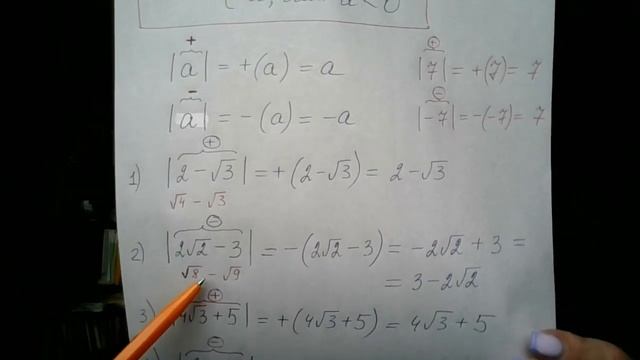 a < 0
+
|a| = +(a) = a
⊕
|7| = +(7) = 7
−
|a| = −(a) = −a
⊖
|−7| = −(−7) = 7
⊕
1) |2 − √3| = +(2 − √3) = 2 − √3
√4 − √3
⊖
2) |2√2 − 3| = −(2√2 − 3) = −2√2 + 3 =
√8 − √9
= 3 − 2√2
⊕
3) |4√3 + 5| = +(4√3 + 5) = 4√3 + 5
⊖